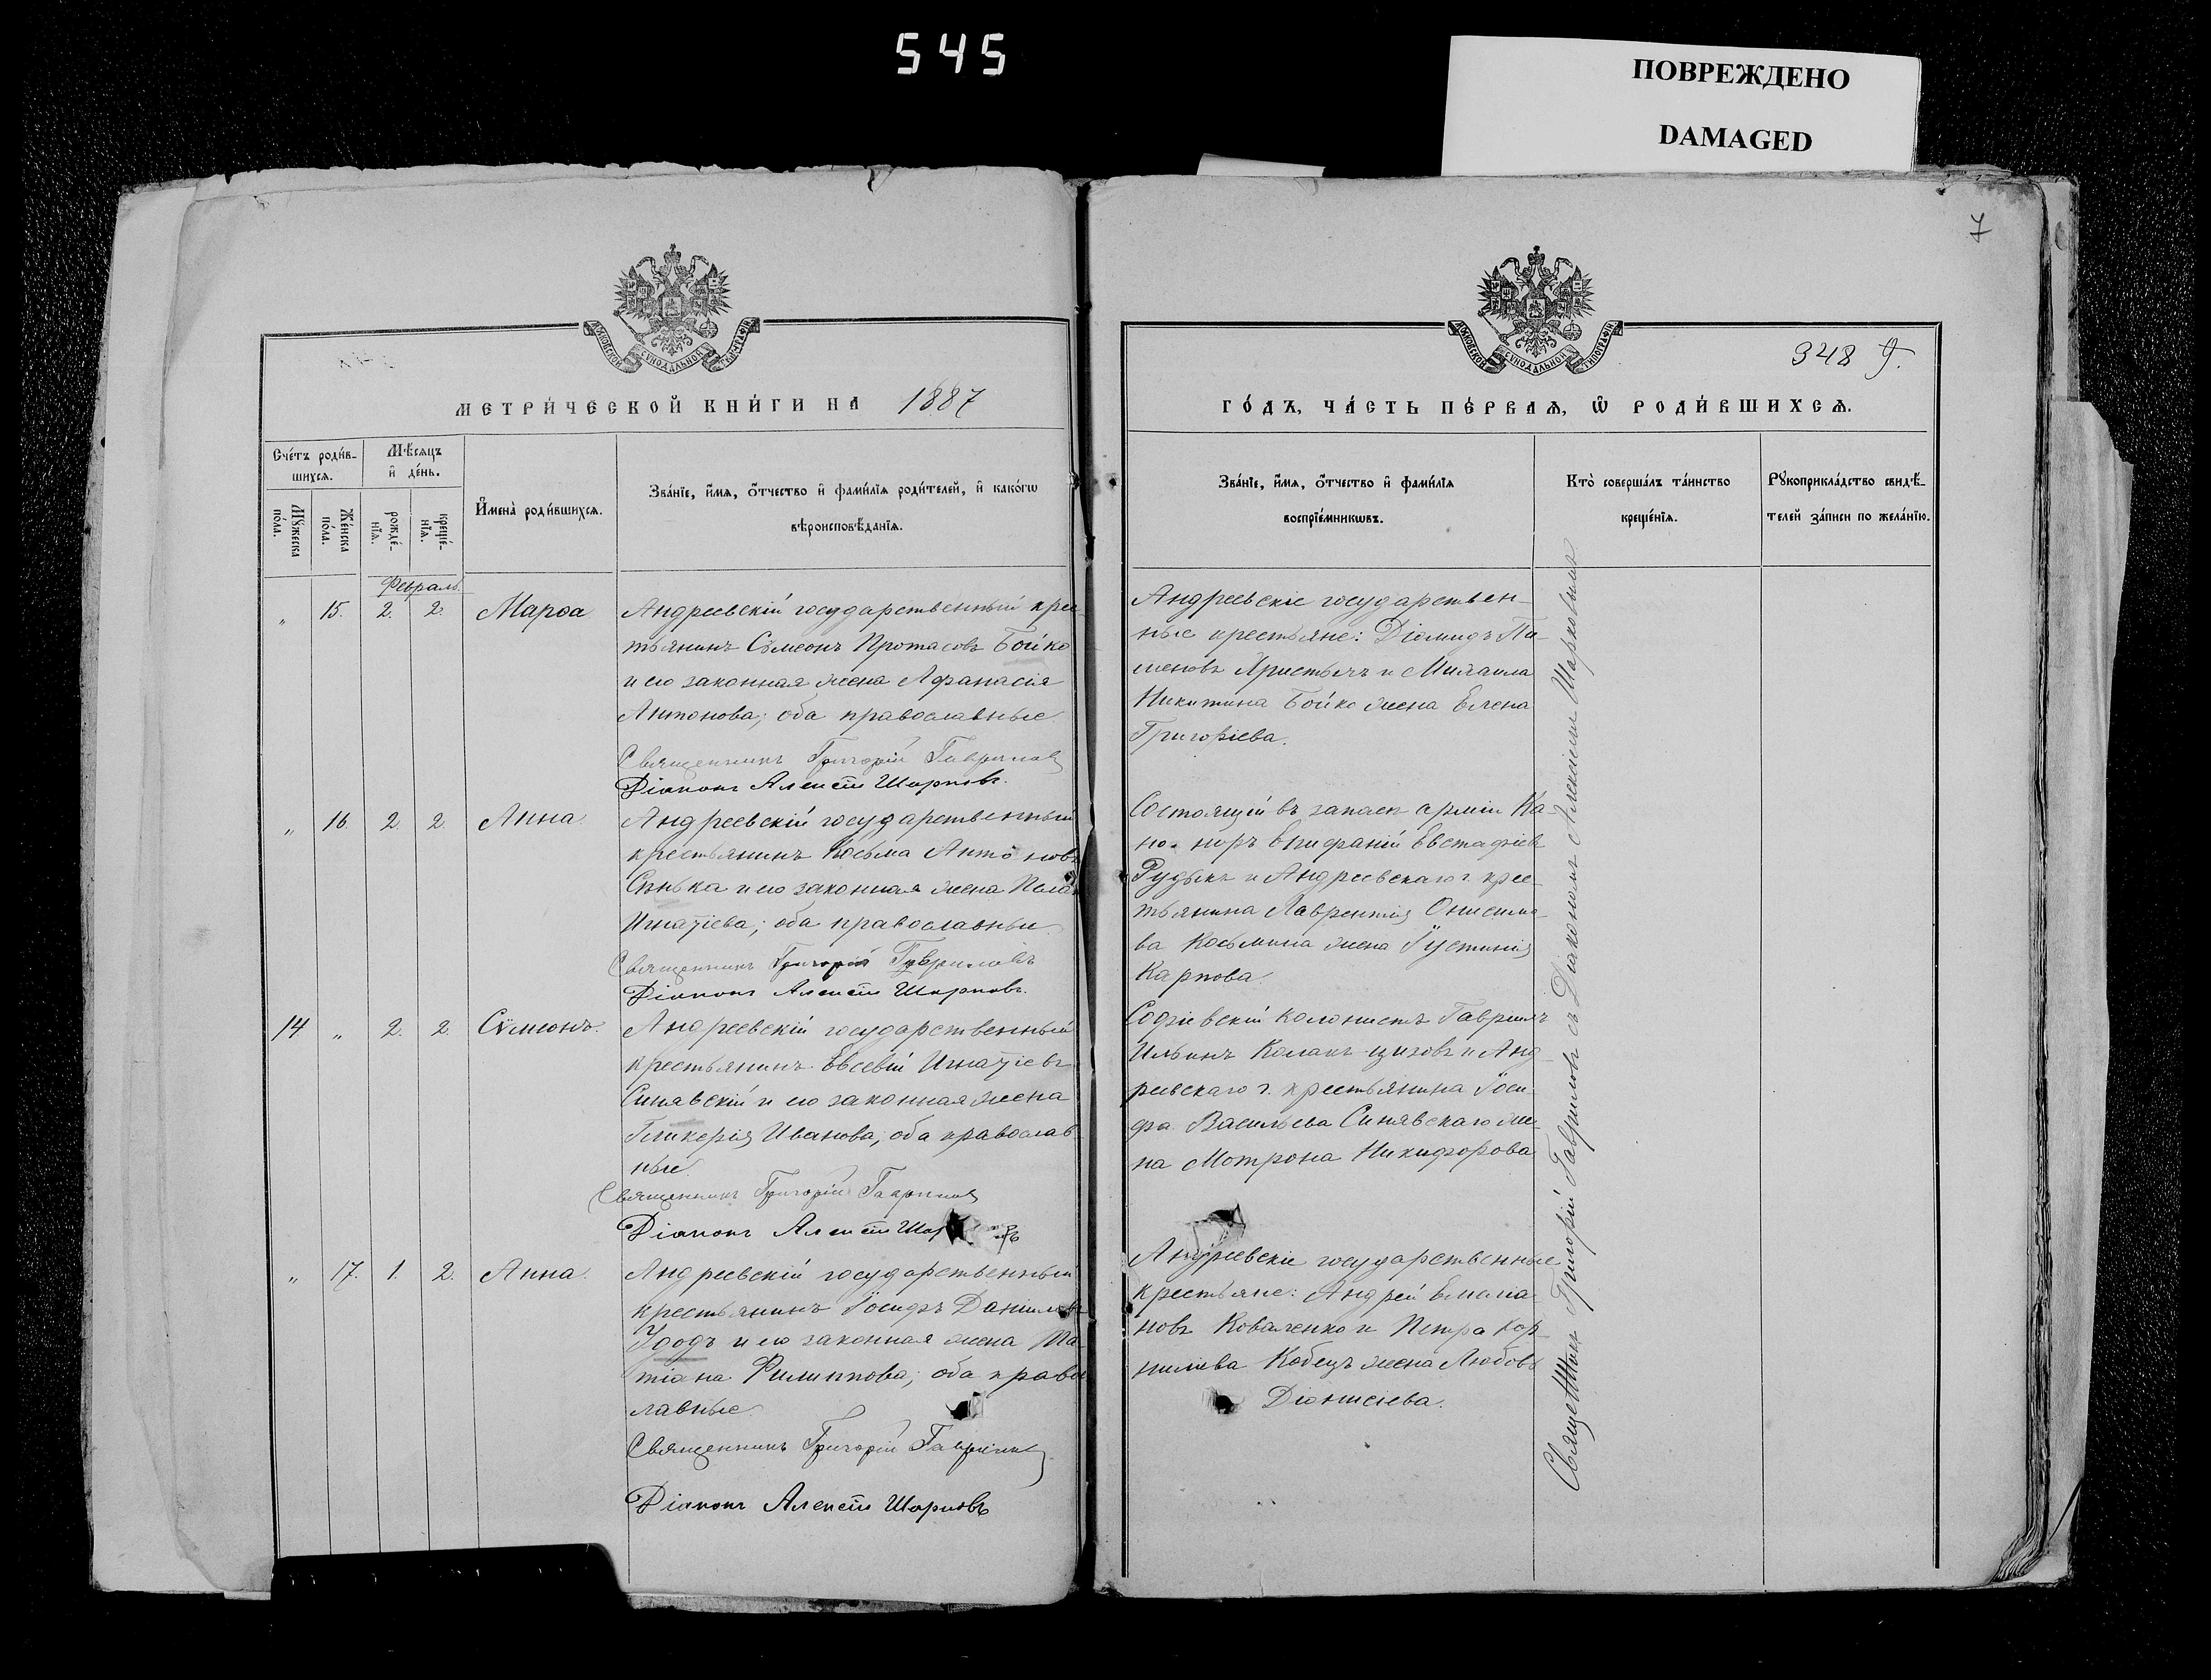 545
ПОВРЕЖДЕНО
DAMAGED
7
348 9.
МЕТРИ́ЧЕСКОЙ КНИ́ГИ НА 1887
ГО́ДЪ, ЧА́СТЬ ПЕ́РВАѦ, Ѿ РОДИ́ВШИХСѦ.
Сче́тъ роди́в-
шихсѧ.
Мѣ́сѧцъ
и҆ де́нь.
Мꙋ́жеска
по́ла.
Же́нска
по́ла.
рожде́-
нїѧ.
креще́-
нїѧ.
И҆мена̀ роди́вшихсѧ.
Зва́нїе, и҆́мѧ, ѻ҆́тчество и҆ фами́лїѧ роди́телей, и҆ како́гѡ
вѣроисповѣ́данїѧ.
Зва́нїе, и҆́мѧ, ѻ҆́тчество и҆ фами́лїѧ
воспрїе́мникѡвъ.
Кто̀ соверша́лъ та́инство
креще́нїѧ.
Рꙋкоприкла́дство свидѣ́-
телей за́писи по жела́нїю.
Февраль.
" 15. 2. 2. Марѳа
Андреевскій государственный крес-
тьянинъ Сѵмеонъ Протасовъ Бойко
и его законная жена Афанасія
Антонова; оба православные
Священникъ Григорій Гавриловъ
Діаконъ Алексій Шарковъ.
Андреевскіе государствен-
ные крестьяне: Діомидъ Па-
меновъ Христычъ и Михаила
Никитина Бойко жена Елена
Григоріева.
" 16. 2. 2. Анна.
Андреевскій государственный
крестьянинъ Косьма Антоновъ
Сѣнька и его законная жена
Игнатіева; оба православные
Священникъ Григорій Гавриловъ
Діаконъ Алексій Шарковъ.
Состоящій въ запасѣ арміи Ка-
но-ниръ Епифаній Евстафіевъ
Рудыкъ и Андреевскаго г. крес-
тьянина Лаврентія Онисимо-
ва Косьмина жена Іустинія
Карпова.
14 " 2. 2 Сѵмеонъ.
Андреевскій государственный
крестьянинъ Евсевій Игнатіевъ
Синявскій и его законная жена
Гликерія Иванова; оба православ-
ные.
Священникъ Григорій Гавриловъ
Діаконъ Алексій Шарковъ
Софіевскій колонистъ Гавріилъ
Ильинъ и Анд-
реевскаго г. крестьянина Іоси-
фа Васильева Синявскаго же-
на Мотрона Никифорова
" 17. 1. 2. Анна.
Андреевскій государственный
крестьянинъ Іосифъ Даніиловъ
Удодъ и его законная жена Та-
тіана Филиппова; оба право-
лавные.
Священникъ Григорій Гавриловъ
Діаконъ Алексій Шарковъ
Андреевскіе государственные
крестьяне: Андрей Емелиа-
новъ Коваленко и Петра Кор-
ниліева Кобецъ жена Любовь
Діонисіева.
Священникъ Григорій Гавриловъ съ Діакономъ Алексіемъ Шарковымъ